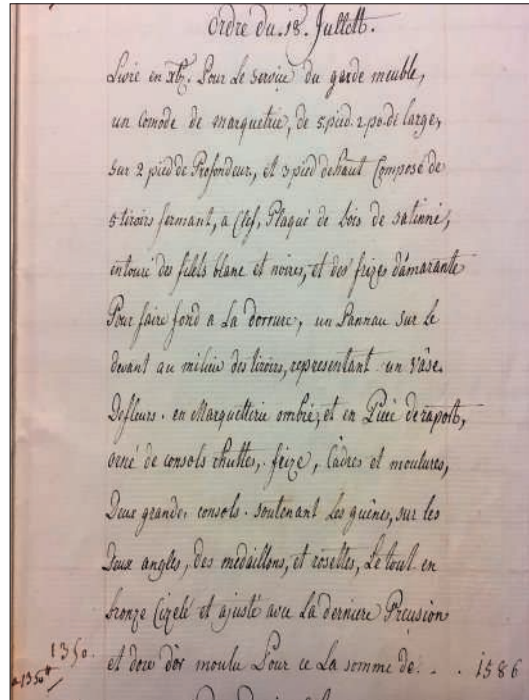 Ordre du .18. Jullett.
Livré en xbr. Pour Le Service du garde meuble,
un comode de marquetrie, de 5. pied. 2 po. de large,
sur 2 pied de Profondeur, et 3 pied dehaut Composé de
5 tiroirs fermant, a Clef, Plaqué de bois de satinné,
entouré des filets blanc et noires, et des frizes damarante
Pour faire fond a La dorrure, un Pannau sur le
devant au milieu des tiroirs, representant un Vâse
Defleurs. en Marquetterie ombré, et en Piéce de raports,
orné de consols chuttes, frize, Cadres et moulures,
Deux grande consols. soutenant Les guênes, sur les
Deux angles, des médaillons, et rosettes, Le tout en
bronze Cizelé et ajusté avec La derniere Precision
1350. et doré d'or moulu Pour ce La somme de. . . 1586
1350